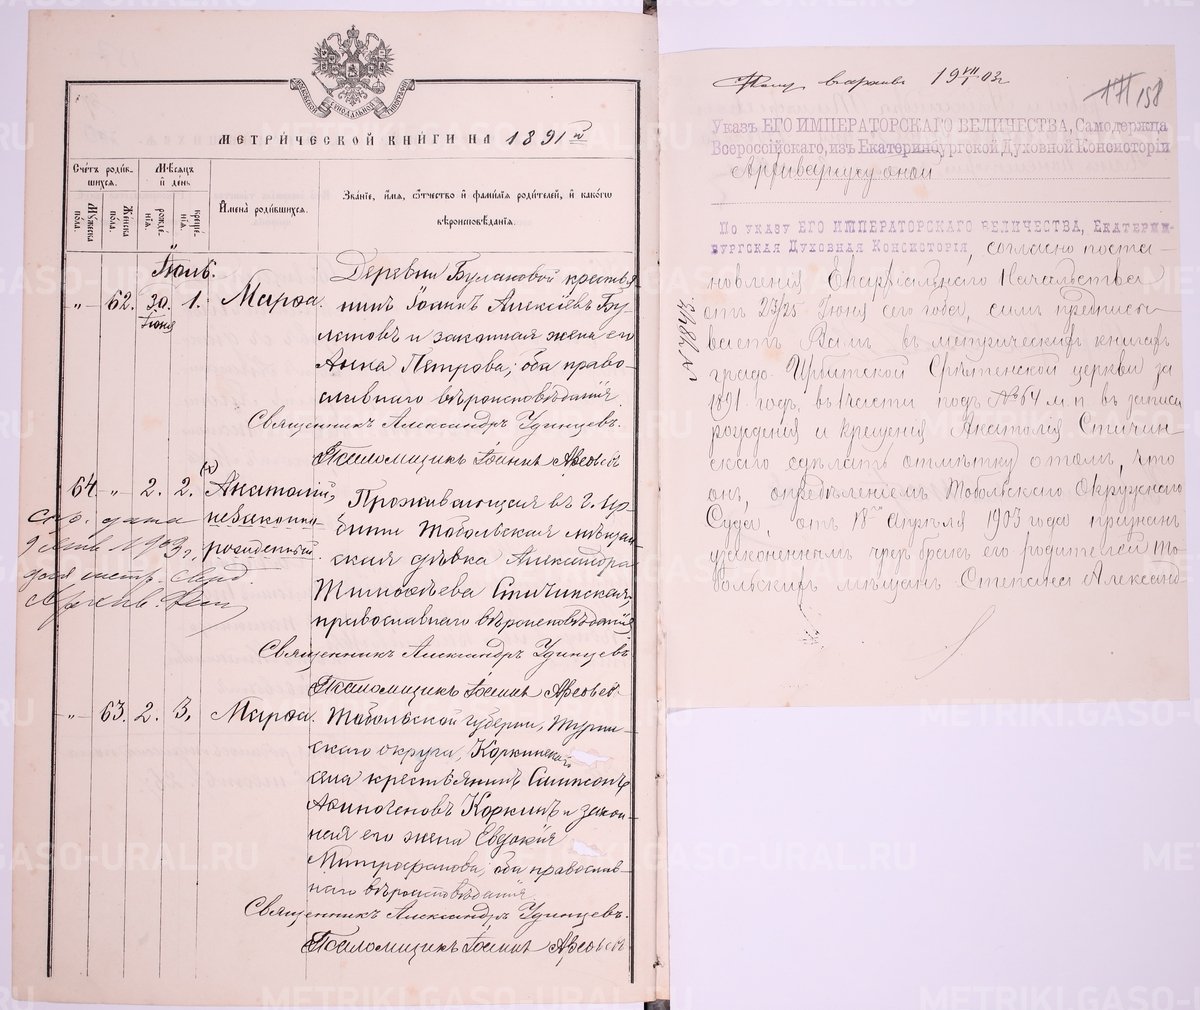 МЕТРИЧЕСКОЙ КНИГИ НА 1891 й
Счетъ родив-
шихся.
Мужеска
пола.
Женска
пола.
Месяцъ
и день
рожде-
нія.
креще-
нія.
Имена родившихся.
Званіе, имя, отчество и фамилія родителей, и какого
вѣроисповѣданія.
Іюль.
„ 62. 30. 1. Марѳа.
Іюня
Деревни Булановой крестья-
нинъ Іоаннъ Алексѣевъ Бу-
лановъ и законная жена его
Анна Петрова, оба право-
славнаго вѣроисповѣданія
Священникъ Александръ Удинцевъ.
Псаломщикъ Іоаннъ
64. „ 2. 2. Анатолій,
незаконно-
рожденный.
Проживающая въ г. Ир-
бити Тобольская мѣщан-
ская дѣвка Александра
Тимоѳѣева Стичинская,
православнаго вѣроисповѣданія
Священникъ Александръ Удинцевъ
Псаломщикъ Іоаннъ
„ 63. 2. 3. Марѳа.
Тобольской губерніи, Турин-
скаго округа, Коркинскаго
села крестьянинъ Симеонъ
Аѳиногеновъ Коркинъ и закон-
ная его жена Евдокія
Митрофанова, оба православ-
наго вѣроисповѣданія
Священникъ Александръ Удинцевъ.
Псаломщикъ Іоаннъ
19 VII/1 03 г
171 158
Указъ ЕГО ИМПЕРАТОРСКАГО ВЕЛИЧЕСТВА, Самодержца
Всероссійскаго, изъ Екатеринбургской Духовной Консисторіи
Архиваріусу оной
По указу ЕГО ИМПЕРАТОРСКАГО ВЕЛИЧЕСТВА, Екатерин-
бургская Духовная Консисторія, согласно поста-
новленія Епархіальнаго Начальства
отъ 23/25 Іюня сего года, симъ предписы-
ваетъ Вамъ въ метрическихъ книгахъ
градо-Ирбитской Срѣтенской церкви за
1891 годъ, въ 1 части подъ № 64 м. п. въ записи
рожденія и крещенія Анатолія Стичин-
скаго сдѣлать отмѣтку о томъ, что
онъ, опредѣленіемъ Тобольскаго Окружнаго
Суда отъ 18 апрѣля 1903 года признанъ
узаконеннымъ чрезъ бракъ его родителей То-
больскихъ мѣщанъ Степана Александ
METRIKI.GASO-URAL.RU